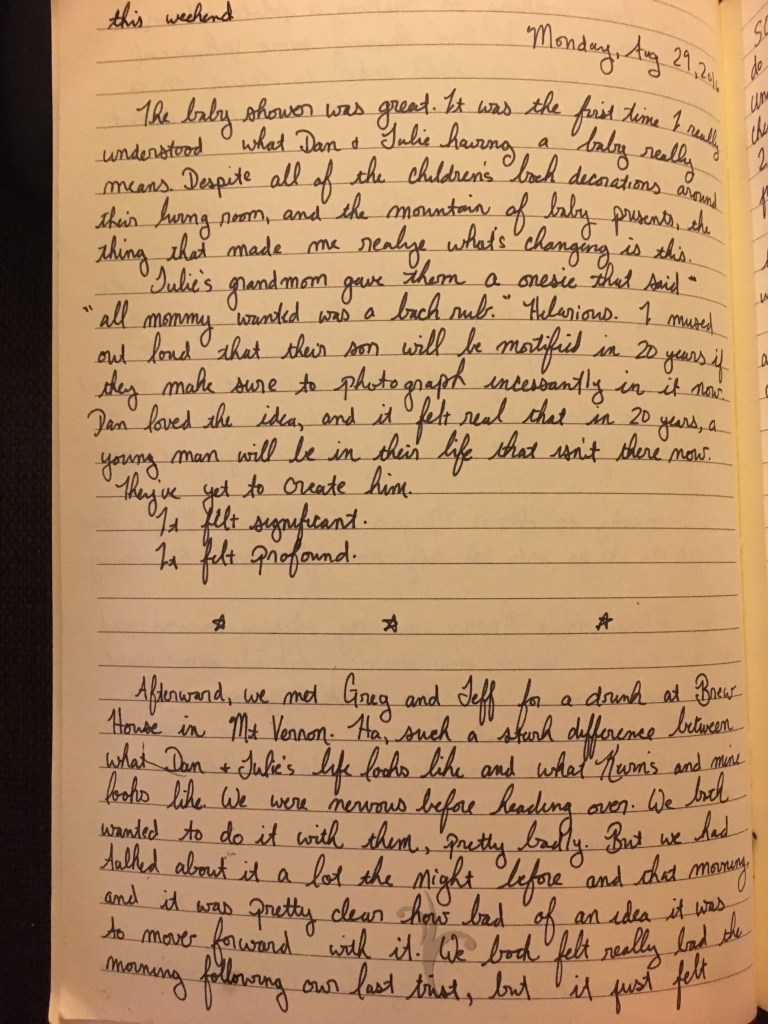 this weekend
Monday, Aug 29, 2016
The baby shower was great. It was the first time I really
understood what Dan + Julie having a baby really
means. Despite all of the children's book decorations around
their living room, and the mountain of baby presents, the
thing that made me realize what's changing is this.
Julie's grandmom gave them a onesie that said "
"all mommy wanted was a back rub." Hilarious. I mused
out loud that their son will be mortified in 20 years if
they make sure to photograph incessantly in it now.
Dan loved the idea, and it felt real that in 20 years, a
young man will be in their life that isn't there now.
They've yet to create him.
It felt significant.
It felt profound.
☆ ☆ ☆
Afterward, we met Greg and Jeff for a drink at Brew
House in Mt Vernon. Ha, such a stark difference between
what Dan + Julie's life looks like and what and mine
looks like. We were nervous before heading over. We both
wanted to do it with them, pretty badly. But we had
talked about it a lot the night before and that morning,
and it was pretty clear how bad of an idea it was
to move forward with it. We both felt really bad the
morning following our last trist, but it just felt